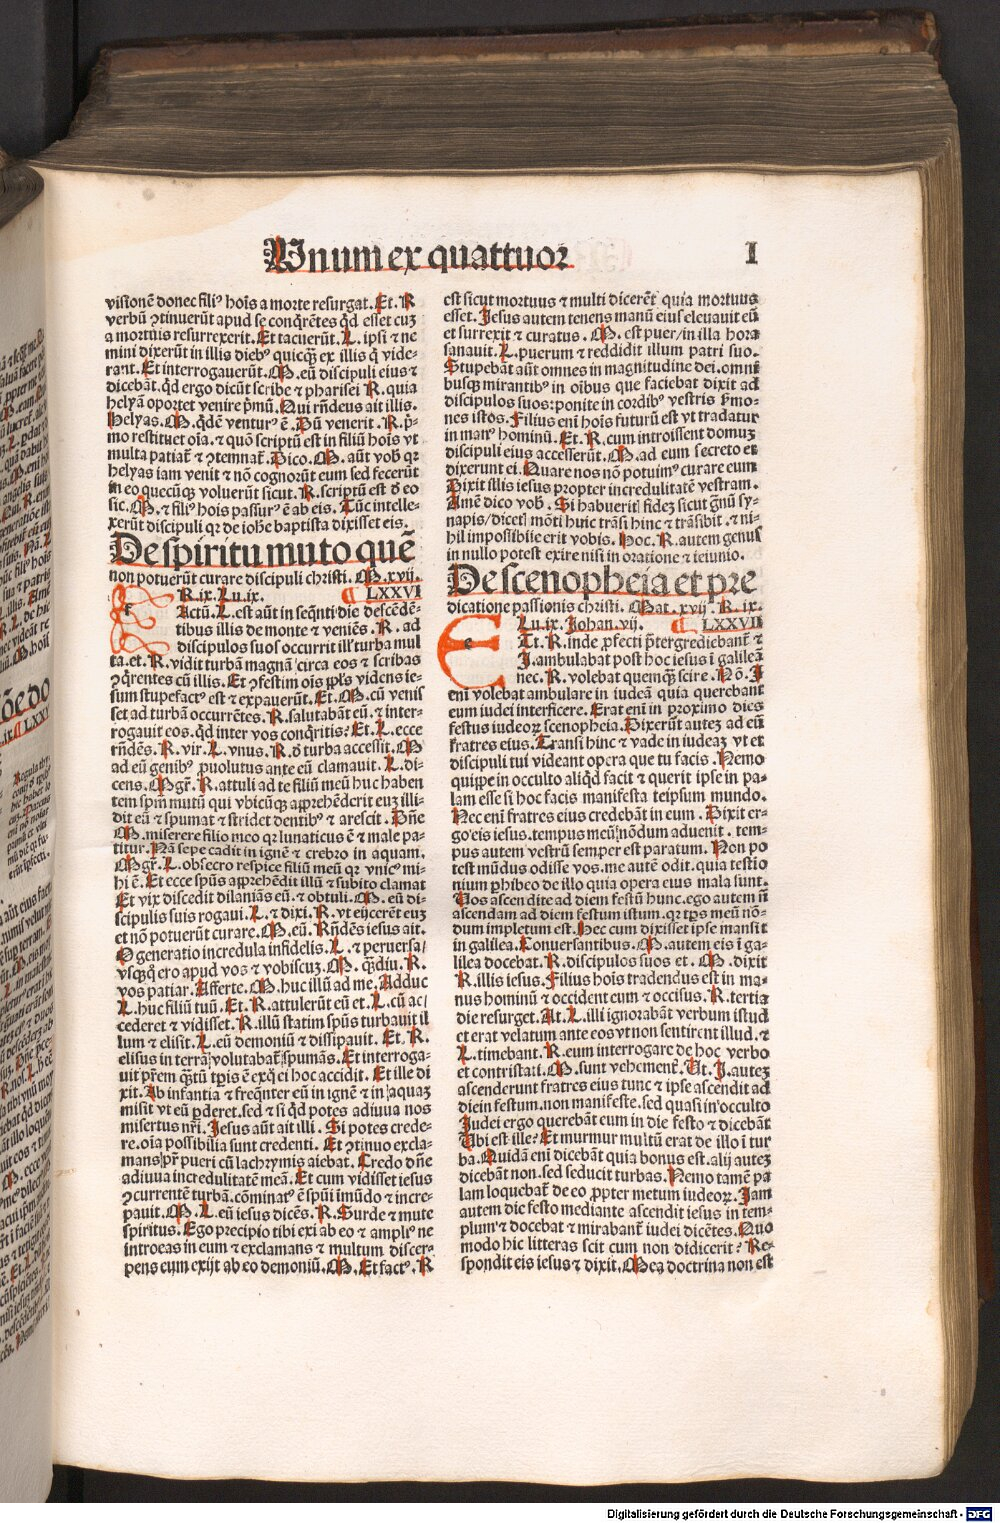 Unum ex quattuor
I
visionē donec fili⁹ hoīs a morte resurgat. Et. R
verbū ꝯtinuerūt apud se conq̄rētes qd̄ esset cuz
a mortuis resurrexerit. Et tacuerūt. L. ipsi ⁊ ne
mini dixerūt in illis dieb⁹ quicq̄ ex illis q̄ vide-
rant. Et interrogauerūt. M. eū discipuli eius ⁊
dicebāt. qd̄ ergo dicūt scribe ⁊ pharisei R. quia
helyā oportet venire p̄mū. Qui rn̄deus ait illis.
Helyas. M. qdē ventur⁹ ē. Dū venerit. R. p̄-
mo restituet oīa. ⁊ quō scriptū est in filiū hoīs vt
multa patiat̄ ⁊ ꝯtemnat̄. Dico. M. aūt vob̄ qr
helyas iam venit ⁊ nō cognorūt eum sed fecerūt
in eo quecūq̄ voluerūt sicut. R. scriptū est d̄ eo
sic. M. ⁊ fili⁹ hois passur⁹ ē ab eis. Tūc intelle-
xerūt discipuli qr de ioh̄e baptista dixisset eis.
De spiritu muto quē
non potuerūt curare discipuli christi. M. xvij.
R. ix. Lu. ix. ¶ LXXVI
f
Actū. L. est aūt in seq̄nti die descēdē-
tibus illis de monte ⁊ veniēs. R. ad
discipulos suos occurrit ill' turba mul
ta. et. R. vidit turbā magnā circa eos ⁊ scribas
ꝯq̄rentes cū illis. Et ꝯfestim oīs pp̄ls videns ie-
sum stupefact⁹ est ⁊ expauerūt. Et. M. cū venis
set ad turbā occurrētes. R. salutabāt eū. ⁊ inter-
rogauit eos. qd̄ inter vos conq̄ritis? Et. L. ecce
rn̄dēs. R. vir. L. vnus. R. d̄ turba accessit. M
ad eū genib⁹ ꝓuolutus ante eū clamauit. L. di-
cens. Mgr̄. R. attuli ad te filiū meū huc haben
tem spm̄ mutū qui vbicūq̄ apprehēderit euz illi-
dit eū ⁊ spumat ⁊ stridet dentib⁹ ⁊ arescit. Dn̄e
M. miserere filio meo qr lunaticus ē ⁊ male pa-
titur. Nā sepe cadit in ignē ⁊ crebro in aquam.
Mgr̄. L. obsecro respice filiū meū qr vnic⁹ mi-
hi ē. Et ecce spūs apprehēdit illū ⁊ subito clamat
Et vix discedit dilaniās eū. ⁊ obtuli. M. eū di-
scipulis suis rogaui. L. ⁊ dixi. R. vt eijcerēt euz
et nō potuerūt curare. M. eū. Rn̄dēs iesus ait.
O generatio incredula infidelis. L. ⁊ peruersa
vsq̄q̄ ero apud vos ⁊ vobiscuz. M. q̄diu. R.
vos patiar. Afferte. M. huc illū ad me. Adduc
L. huc filiū tuū. Et. R. attulerūt eū et. L. cū ac
cederet ⁊ vidisset. R. illū statim spūs turbauit il
lum ⁊ elisit. L. eū demoniū ⁊ dissipauit. Et. R.
elisus in terra volutabat̄ spumās. Et interroga-
uit p̄rem q̄tū tp̄is ē exq̄ ei hoc accidit. Et ille di
xit. Ab infantia ⁊ freq̄nter eū in ignē ⁊ in aquaz
misit vt eū ꝑderet. sed ⁊ si qd̄ potes adiuua nos
misertus nr̄i. Jesus aūt ait illi. Si potes crede-
re. oīa possibilia sunt credenti. Et ꝯtinuo excla-
mans pr̄ pueri cū lachrymis aiebat. Credo dn̄e
adiuua incredulitatē meā. Et cum vidisset iesus
ꝯcurrentē turbā. cōminat⁹ ē spūi īmūdo ⁊ incre-
pauit. M. L. eū iesus dicēs. R. Surde ⁊ mute
spiritus. Ego precipio tibi exi ab eo ⁊ ampli⁹ ne
introeas in eum ⁊ exclamans ⁊ multum discer-
pens eum exijt ab eo demoniū. M. Et fact⁹. R
est sicut mortuus ⁊ multi dicerēt quia mortuus
esset. Jesus autem tenens manū eius eleuauit eū
et surrexit ⁊ curatus. M. est puer in illa hora
sanauit. L. puerum ⁊ reddidit illum patri suo.
Stupebāt aūt omnes in magnitudine dei. omni
busq̄ mirantib⁹ in oībus que faciebat dixit ad
discipulos suos: ponite in cordib⁹ vestris s̄mo-
nes istos. Filius enī hoīs futurū est vt tradatur
in man⁹ hominū. Et. R. cum introissent domuz
discipuli eius accesserūt. M. ad eum secreto et
dixerunt ei. Quare nos nō potuim⁹ curare eum
Dixit illis iesus propter incredulitatē vestram.
Amē dico vob̄. Si habuerit fidez sicut gnū sy-
napis dicet mōti huic trāsi hinc ⁊ trāsibit. ⁊ ni-
hil impossibile erit vobis. Hoc. R. autem genus
in nullo potest exire nisi in oratione ⁊ ieiunio.
De scenopheia et pre
dicatione passionis christi. Mat. xvij. R. ix.
Lu. ix. Johan. vij. ¶ LXXVII
e
Tt. R. inde ꝓfecti p̄tergrediebant̄ ⁊
J. ambulabat post hoc iesus ī galileā
nec. R. volebat quemq̄ scire. Nō. J
enī volebat ambulare in iudeā quia querebant
eum iudei interficere. Erat enī in proximo dies
festus iudeoꝝ scenopheia. Dixerūt autez ad eū
fratres eius. Transi hinc ⁊ vade in iudeaz vt et
discipuli tui videant opera que tu facis. Nemo
quippe in occulto aliqd̄ facit ⁊ querit ipse in pa-
lam esse si hoc facis manifesta teipsum mundo.
Nec enī fratres eius credebāt in eum. Dixit er-
go eis iesus. tempus meū nōdum aduenit. tem-
pus autem vestrū semper est paratum. Non po
test mūdus odisse vos. me autē odit. quia testio
nium ꝑhibeo de illo quia opera eius mala sunt.
Vos ascendite ad diem festū hunc. ego autem n̄
ascendam ad diem festum istum. qr tp̄s meū nō-
dum impletum est. Hec cum dixisset ipse mansit
in galilea. Conuersantibus. M. autem eis ī ga-
lilea docebat. R. discipulos suos et. M. dixit
R. illis iesus. Filius hoīs tradendus est in ma-
nus hominū ⁊ occident eum ⁊ occisus. R. tertia
die resurget. At. L. illi ignorabāt verbum istud
et erat velatum ante eos vt non sentirent illud. ⁊
L. timebant. R. eum interrogare de hoc verbo
et contristati. M. sunt vehement̄. Ut. J. autez
ascenderunt fratres eius tunc ⁊ ipse ascendit ad
diem festum. non manifeste. sed quasi in occulto
Judei ergo querebāt eum in die festo ⁊ dicebāt
Ubi est ille? Et murmur multū erat de illo ī tur
ba. Quidā enī dicebāt quia bonus est. alij autez
dicebāt non. sed seducit turbas. Nemo tamē pa
lam loquebat̄ de eo ꝓpter metum iudeoꝝ. Jam
autem die festo mediante ascendit iesus in tem-
plum ⁊ docebat ⁊ mirabant̄ iudei dicētes. Quo
modo hic litteras scit cum non didicerit? Re-
spondit eis iesus ⁊ dixit. Mea doctrina non est
Digitalisierung gefördert durch die Deutsche Forschungsgemeinschaft - DFG